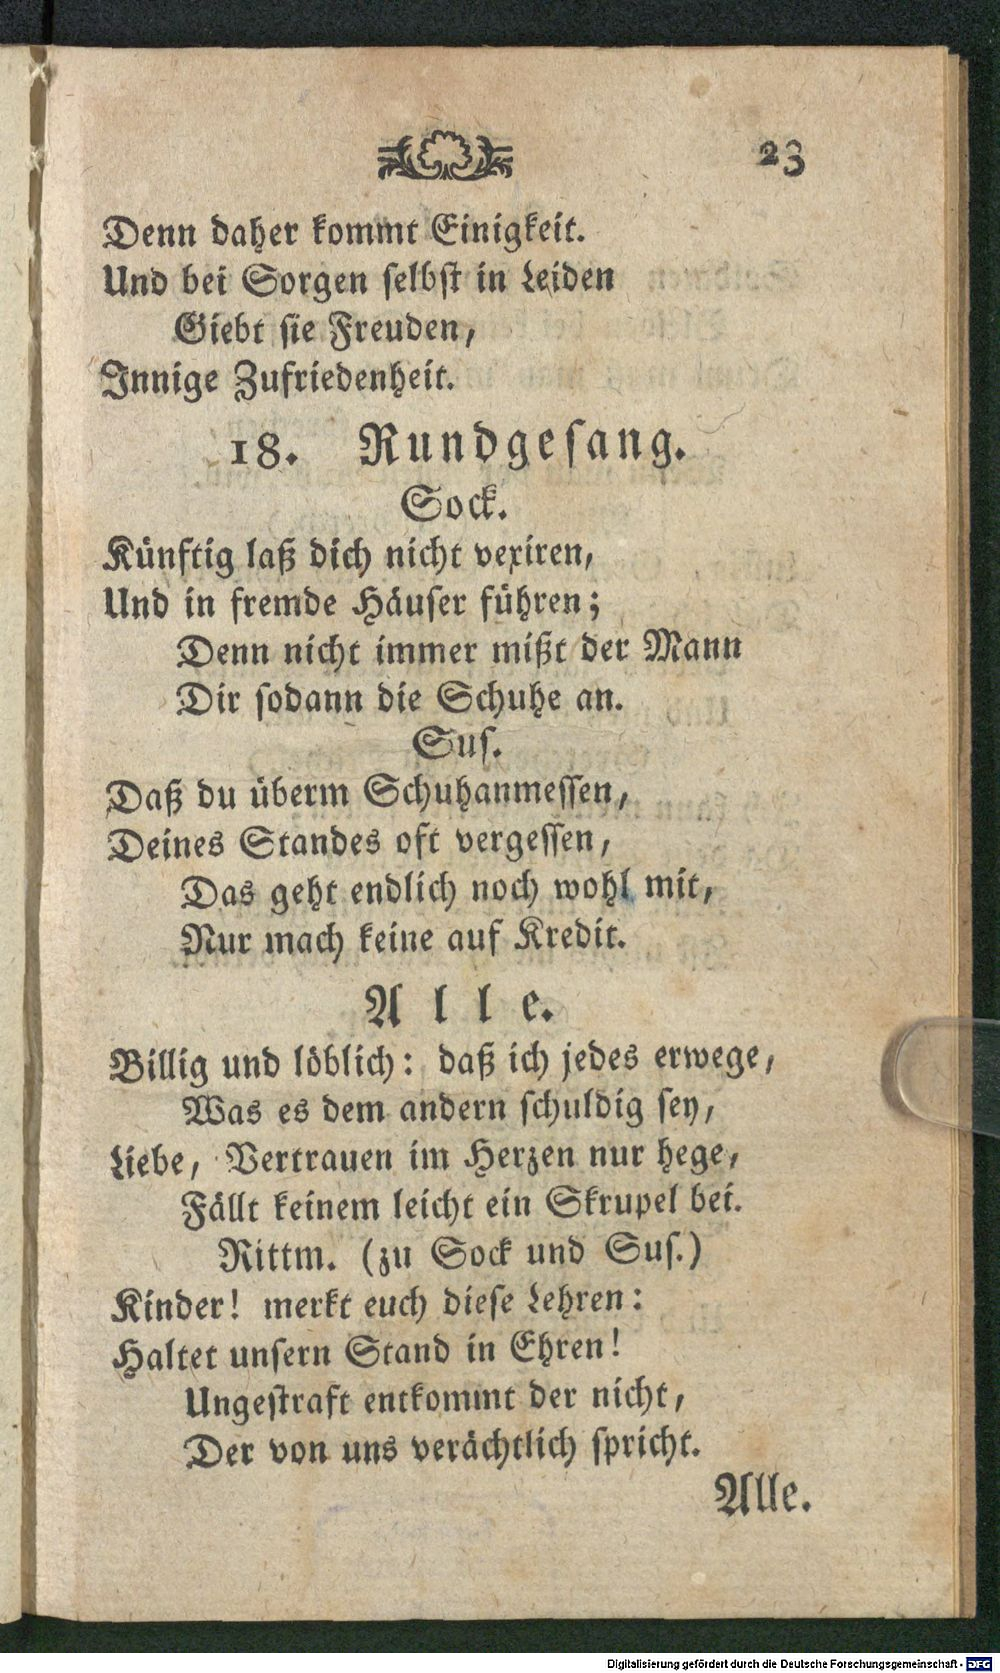 23
Denn daher kommt Einigkeit.
Und bei Sorgen selbst in Leiden
Giebt sie Freuden,
Innige Zufriedenheit.
18. Rundgesang.
Sock.
Künftig laß dich nicht vexiren,
Und in fremde Häuser führen;
Denn nicht immer mißt der Mann
Dir sodann die Schuhe an.
Sus.
Daß du überm Schuhanmessen,
Deines Standes oft vergessen,
Das geht endlich noch wohl mit,
Nur mach keine auf Kredit.
Alle.
Billig und löblich: daß ich jedes erwege,
Was es dem andern schuldig sey,
Liebe, Vertrauen im Herzen nur hege,
Fällt keinem leicht ein Skrupel bei.
Rittm. (zu Sock und Sus.)
Kinder! merkt euch diese Lehren:
Haltet unsern Stand in Ehren!
Ungestraft entkommt der nicht,
Der von uns verächtlich spricht.
Alle.
Digitalisierung gefördert durch die Deutsche Forschungsgemeinschaft - DFG